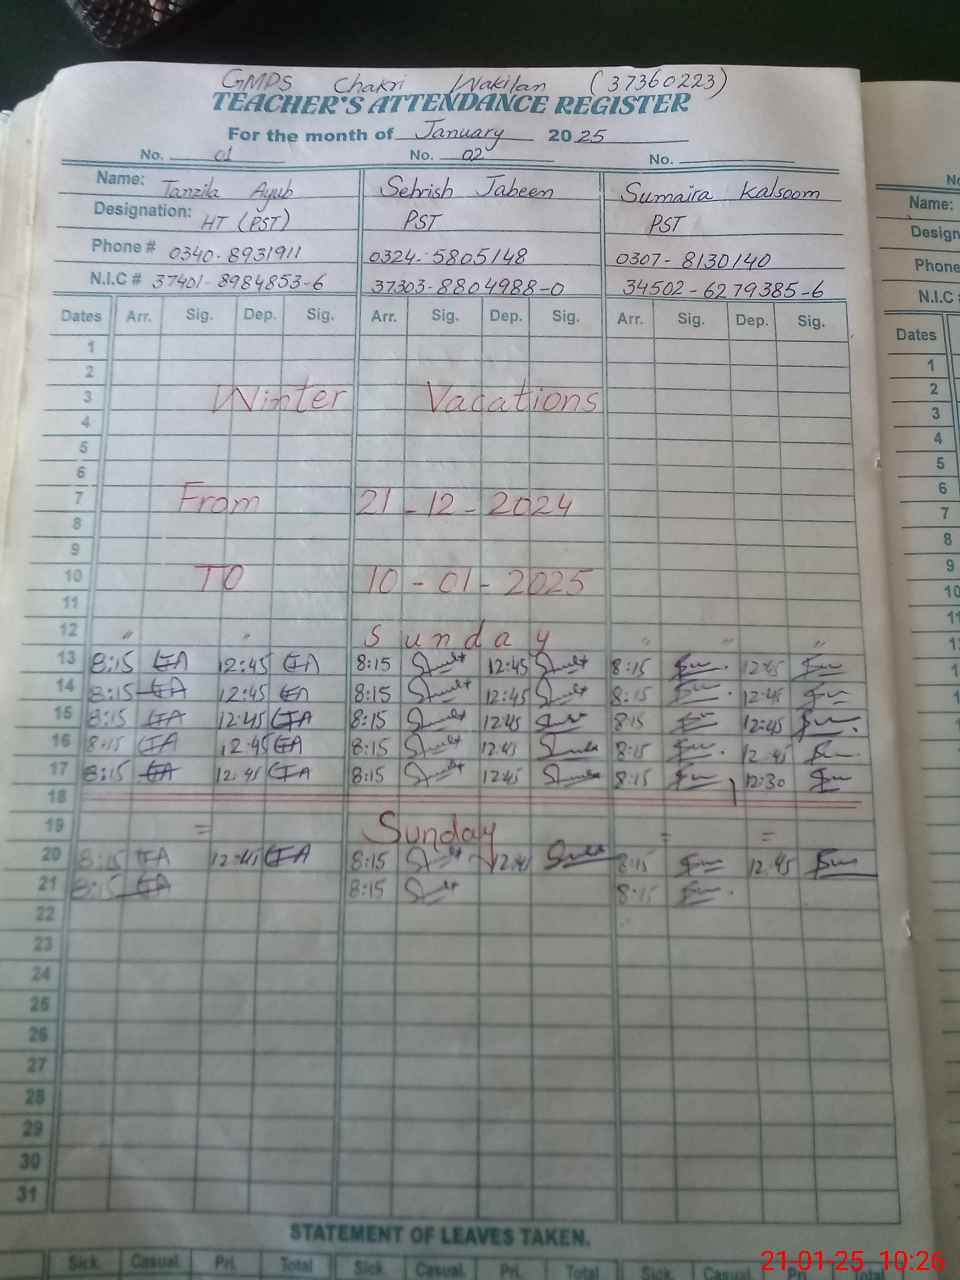 GMPS Chakri Wakilan (37360223)
TEACHER'S ATTENDANCE REGISTER
For the month of January 2025
No. 01 No. 02 No.
Name: Tanzila Ayub Sehrish Jabeen Sumaira Kalsoom
Designation: HT (PST) PST PST
Phone # 0340-8931911 0324-5805148 0307-8130140
N.I.C # 37401-8984853-6 37303-8804988-0 34502-6279385-6
Dates Arr. Sig. Dep. Sig. Arr. Sig. Dep. Sig. Arr. Sig. Dep. Sig.
1
2
3 Winter Vacations
4
5
6
7 From 21-12-2024
8
9
10 TO 10-01-2025
11
12 " " Sunday " " "
13 8:15 TA 12:45 TA 8:15 12:45 8:15 12:45
14 8:15 TA 12:45 TA 8:15 12:45 8:15 12:45
15 8:15 TA 12:45 TA 8:15 12:45 8:15 12:45
16 8:15 TA 12:45 TA 8:15 12:45 8:15 12:45
17 8:15 TA 12:45 TA 8:15 12:45 8:15 12:30
18
19 = Sunday = =
20 8:15 TA 12:45 TA 8:15 12:45 8:15 12:45
21 8:15 TA 8:15 8:15
22
23
24
25
26
27
28
29
30
31
STATEMENT OF LEAVES TAKEN.
Sick. Casual. Pri. Total Sick. Casual. Pri. Total Sick. Casual. Pri. Total
No
Name:
Design
Phone
N.I.C
Dates
1
2
3
4
5
6
7
8
9
10
11
12
13
14
15
16
17
18
19
20
21-01-25 10:26